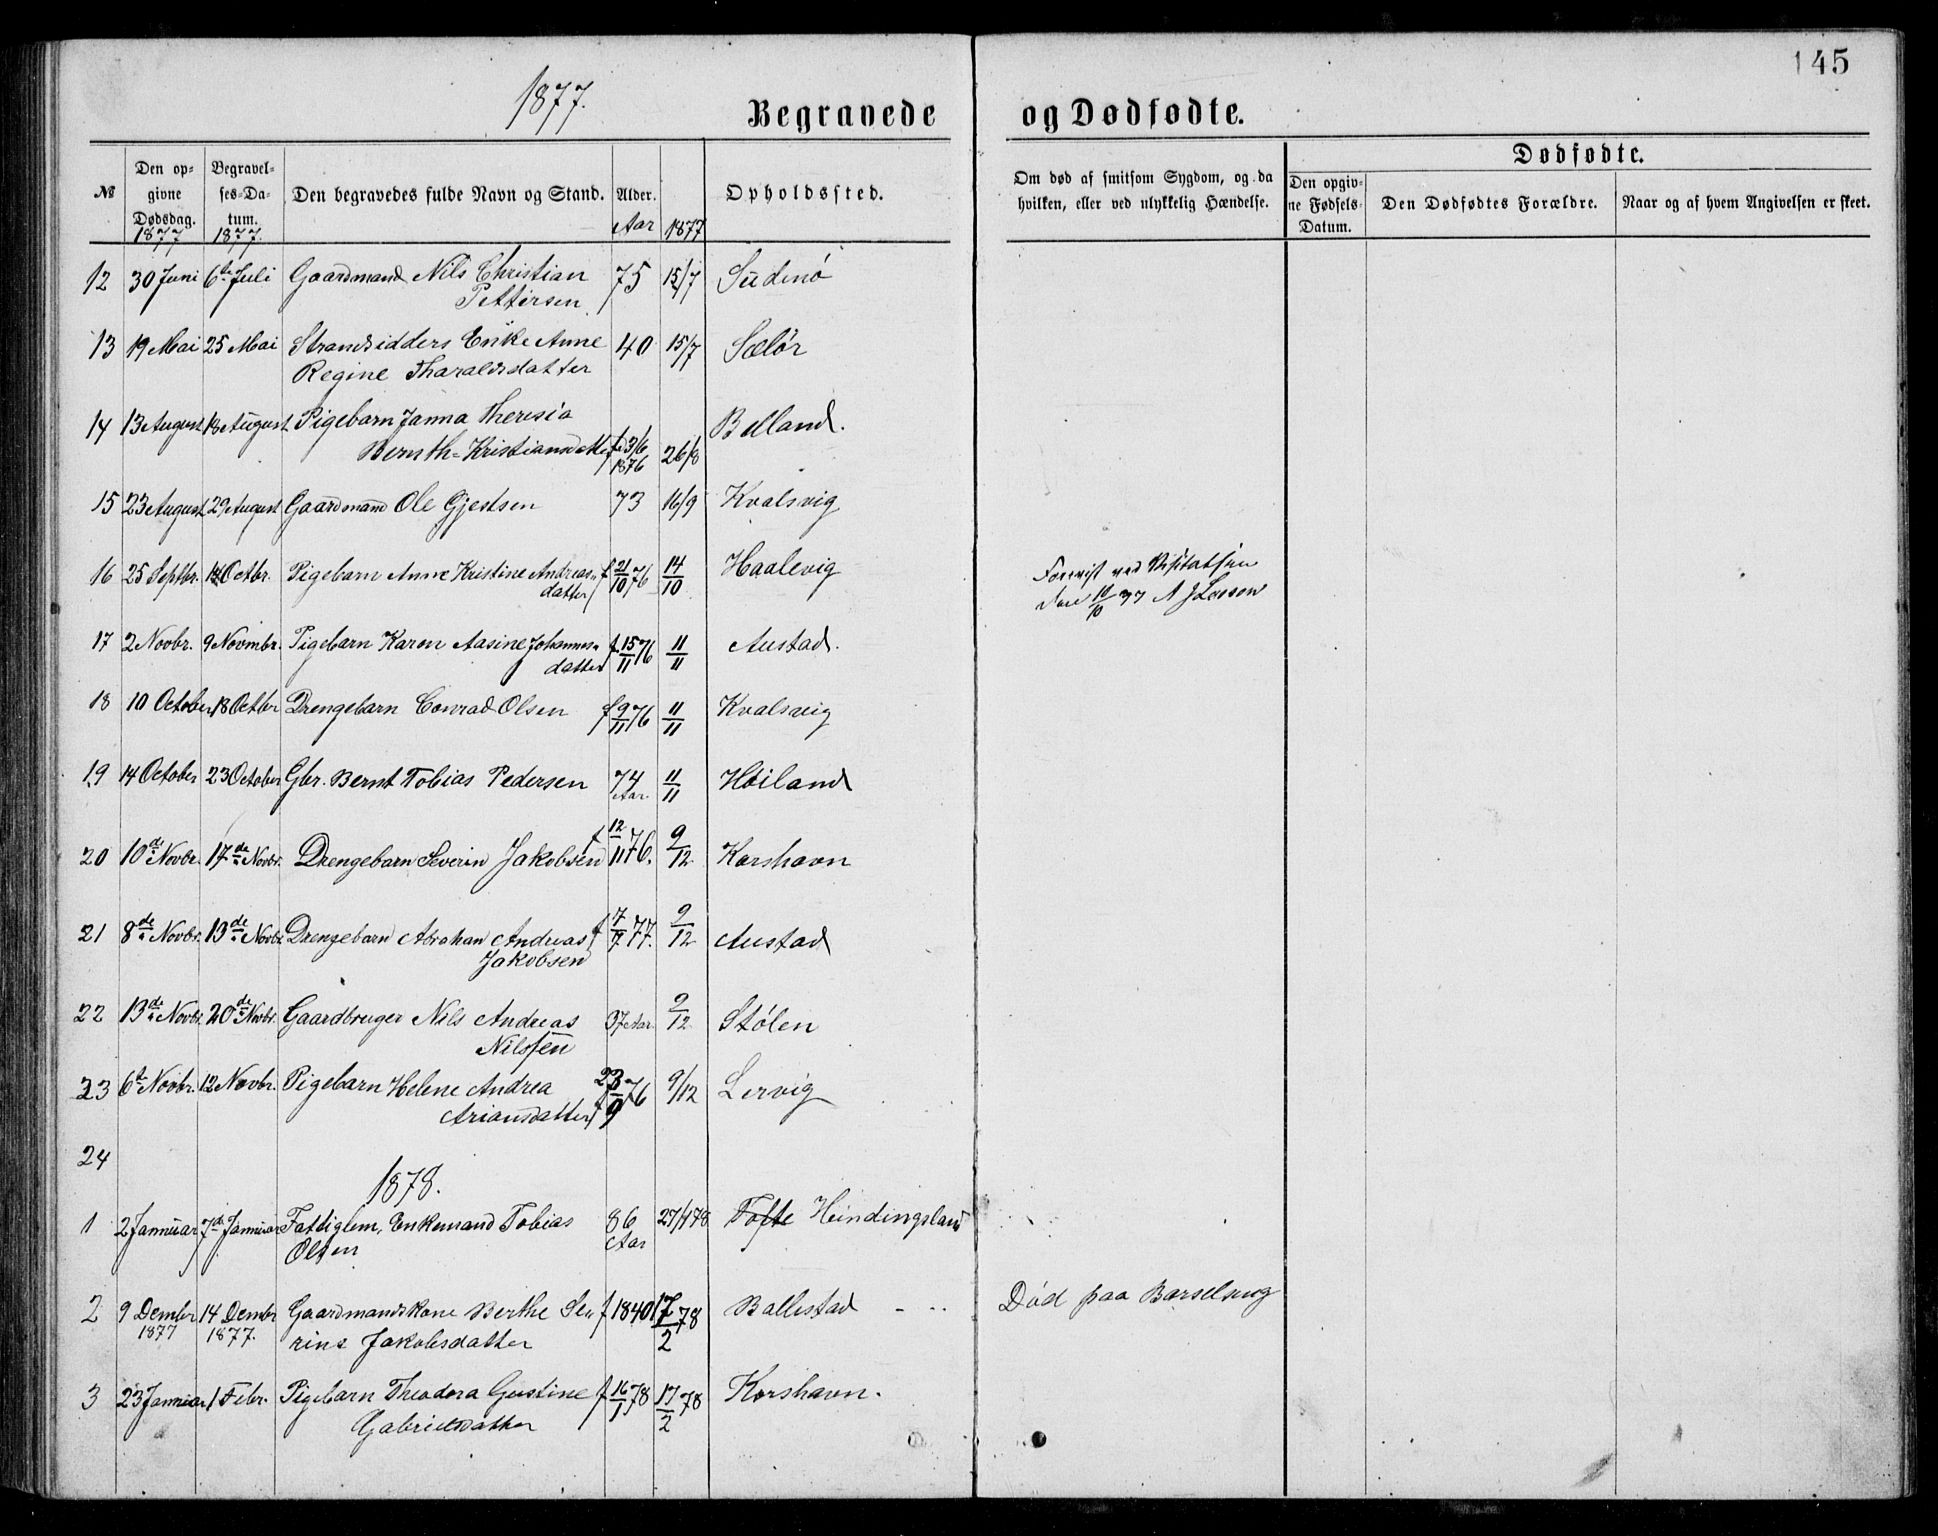 145
1877.
Begravede og Dødfødte.
№
Den opgivne Dødsdag. 1877
Begravelses-Datum. 1877.
Den begravedes fulde Navn og Stand.
Alder. Aar
1877
Opholdssted.
Om død af smitsom Sygdom, og da hvilken, eller ved ulykkelig Hændelse.
Dødfødte.
Den opgivne Fødsels-Datum.
Den Dødfødtes Forældre.
Naar og af hvem Angivelsen er skeet.
12 30 Juni 6te Juli Gaardmand Nils Christian 75 15/7 Sudenø
Pettersen
13 19 Mai 25 Mai Strandsidders Enke Anne 40 15/7 Sælør
Regine Tharaldsdatter
14 13 August 18 August Pigebarn Janna Theresia Belland.
Bernth-Kristiansdatter f 3/6 1876 26/8
15 23 August 29 August Gaardmand Ole Gjestsen 73 16/9 Kvalsvig
16 25 Septbr. 14 Octbr. Pigebarn Anne Kristine Andreas- f 21/10 76 14/10 Haalevig
datter
Forevist ved Visitatsen
den 10/10 77 A J Lasson
17 2 Novbr. 9 Novmbr. Pigebarn Karen Aasine Johannes- f 15/11 76 11/11 Austad.
datter
18 10 October 18 Octbr Drengebarn Conrad Olsen f 9/11 76 11/11 Kvalsvig
19 14 October 23 October Gbr. Bernt Tobias Pedersen 74 Aar 11/11 Høiland
20 10de Novbr. 17de Novbr. Drengebarn Severin Jakobsen f 12/11 76. 9/12 Korshavn
21 8de Novbr. 13de Novbr. Drengebarn Abrahan Andreas f 7/7 77. 9/12 Austad
Jakobsen
22 13de Novbr. 20de Novbr. Gaardbruger Nils Andreas 37 Aar. 9/12 Stølen
Nilssen
23 6te Novbr. 12 Novbr. Pigebarn Helene Andrea f 23/9 76 9/12 Lervig
Ariansdatter
24
1878.
1 2 Januar 7de Januar Fattiglem, Enkemand Tobias 86 Aar 27/1 78 Tofte Heindingsland
Olsen
2 9 Dember 1877 14 Dembr 1877. Gaardmandskone Berthe Se- f 1840 17/2 78 Ballestad Død paa Barselseng
rine Jakobsdatter
3 23 Januar 1 Febr. Pigebarn Theodora Gustine f 16/1 78 17/2 78 Korshavn.
Gabrielsdatter